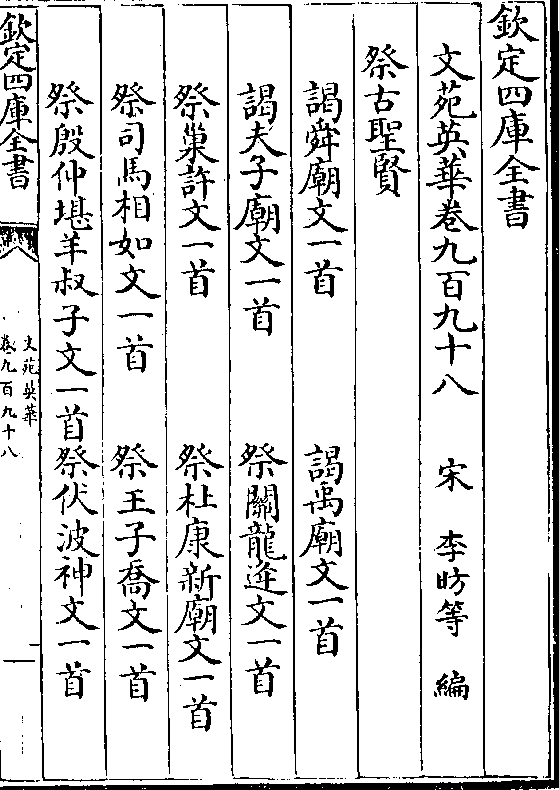 欽定四庫全書
文苑英華卷九百九十八　宋　李昉等　編
祭古聖賢
謁舜廟文一首　謁禹廟文一首
謁夫子廟文一首　祭關龍逄文一首
祭巢許文一首　祭杜康新廟文一首
祭司馬相如文一首　祭王子喬文一首
祭殷仲堪羊叔子文一首祭伏波神文一首
欽定四庫全書
文苑英華
卷九百九十八
一